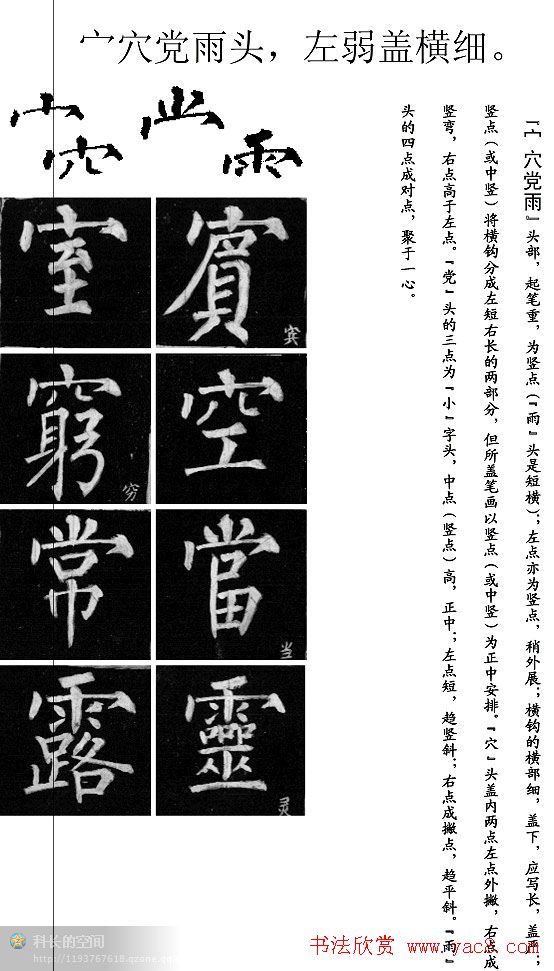 宀穴党雨头，左弱盖横细。
『宀穴党雨』头部，起笔重，为竖点（『雨』头是短横）；左点亦为竖点，稍外展；横钩的横部细，盖下，应写长，盖严；
竖点（或中竖）将横钩分成左短右长的两部分，但所盖笔画以竖点（或中竖）为正中安排。『穴』头盖内两点左点外撇，右点成
竖弯，右点高于左点。『党』头的三点为『小』字头，中点（竖点）高，正中；左点短，趋竖斜；右点成撇点，趋平斜。『雨』
头的四点成对点，聚于一心。
宀
穴
雨
室
賓
宾
窮
穷
空
常
當
当
露
靈
灵
科长的空间
http://1193767618.qzone.qq
书法欣赏 www.yac8.com